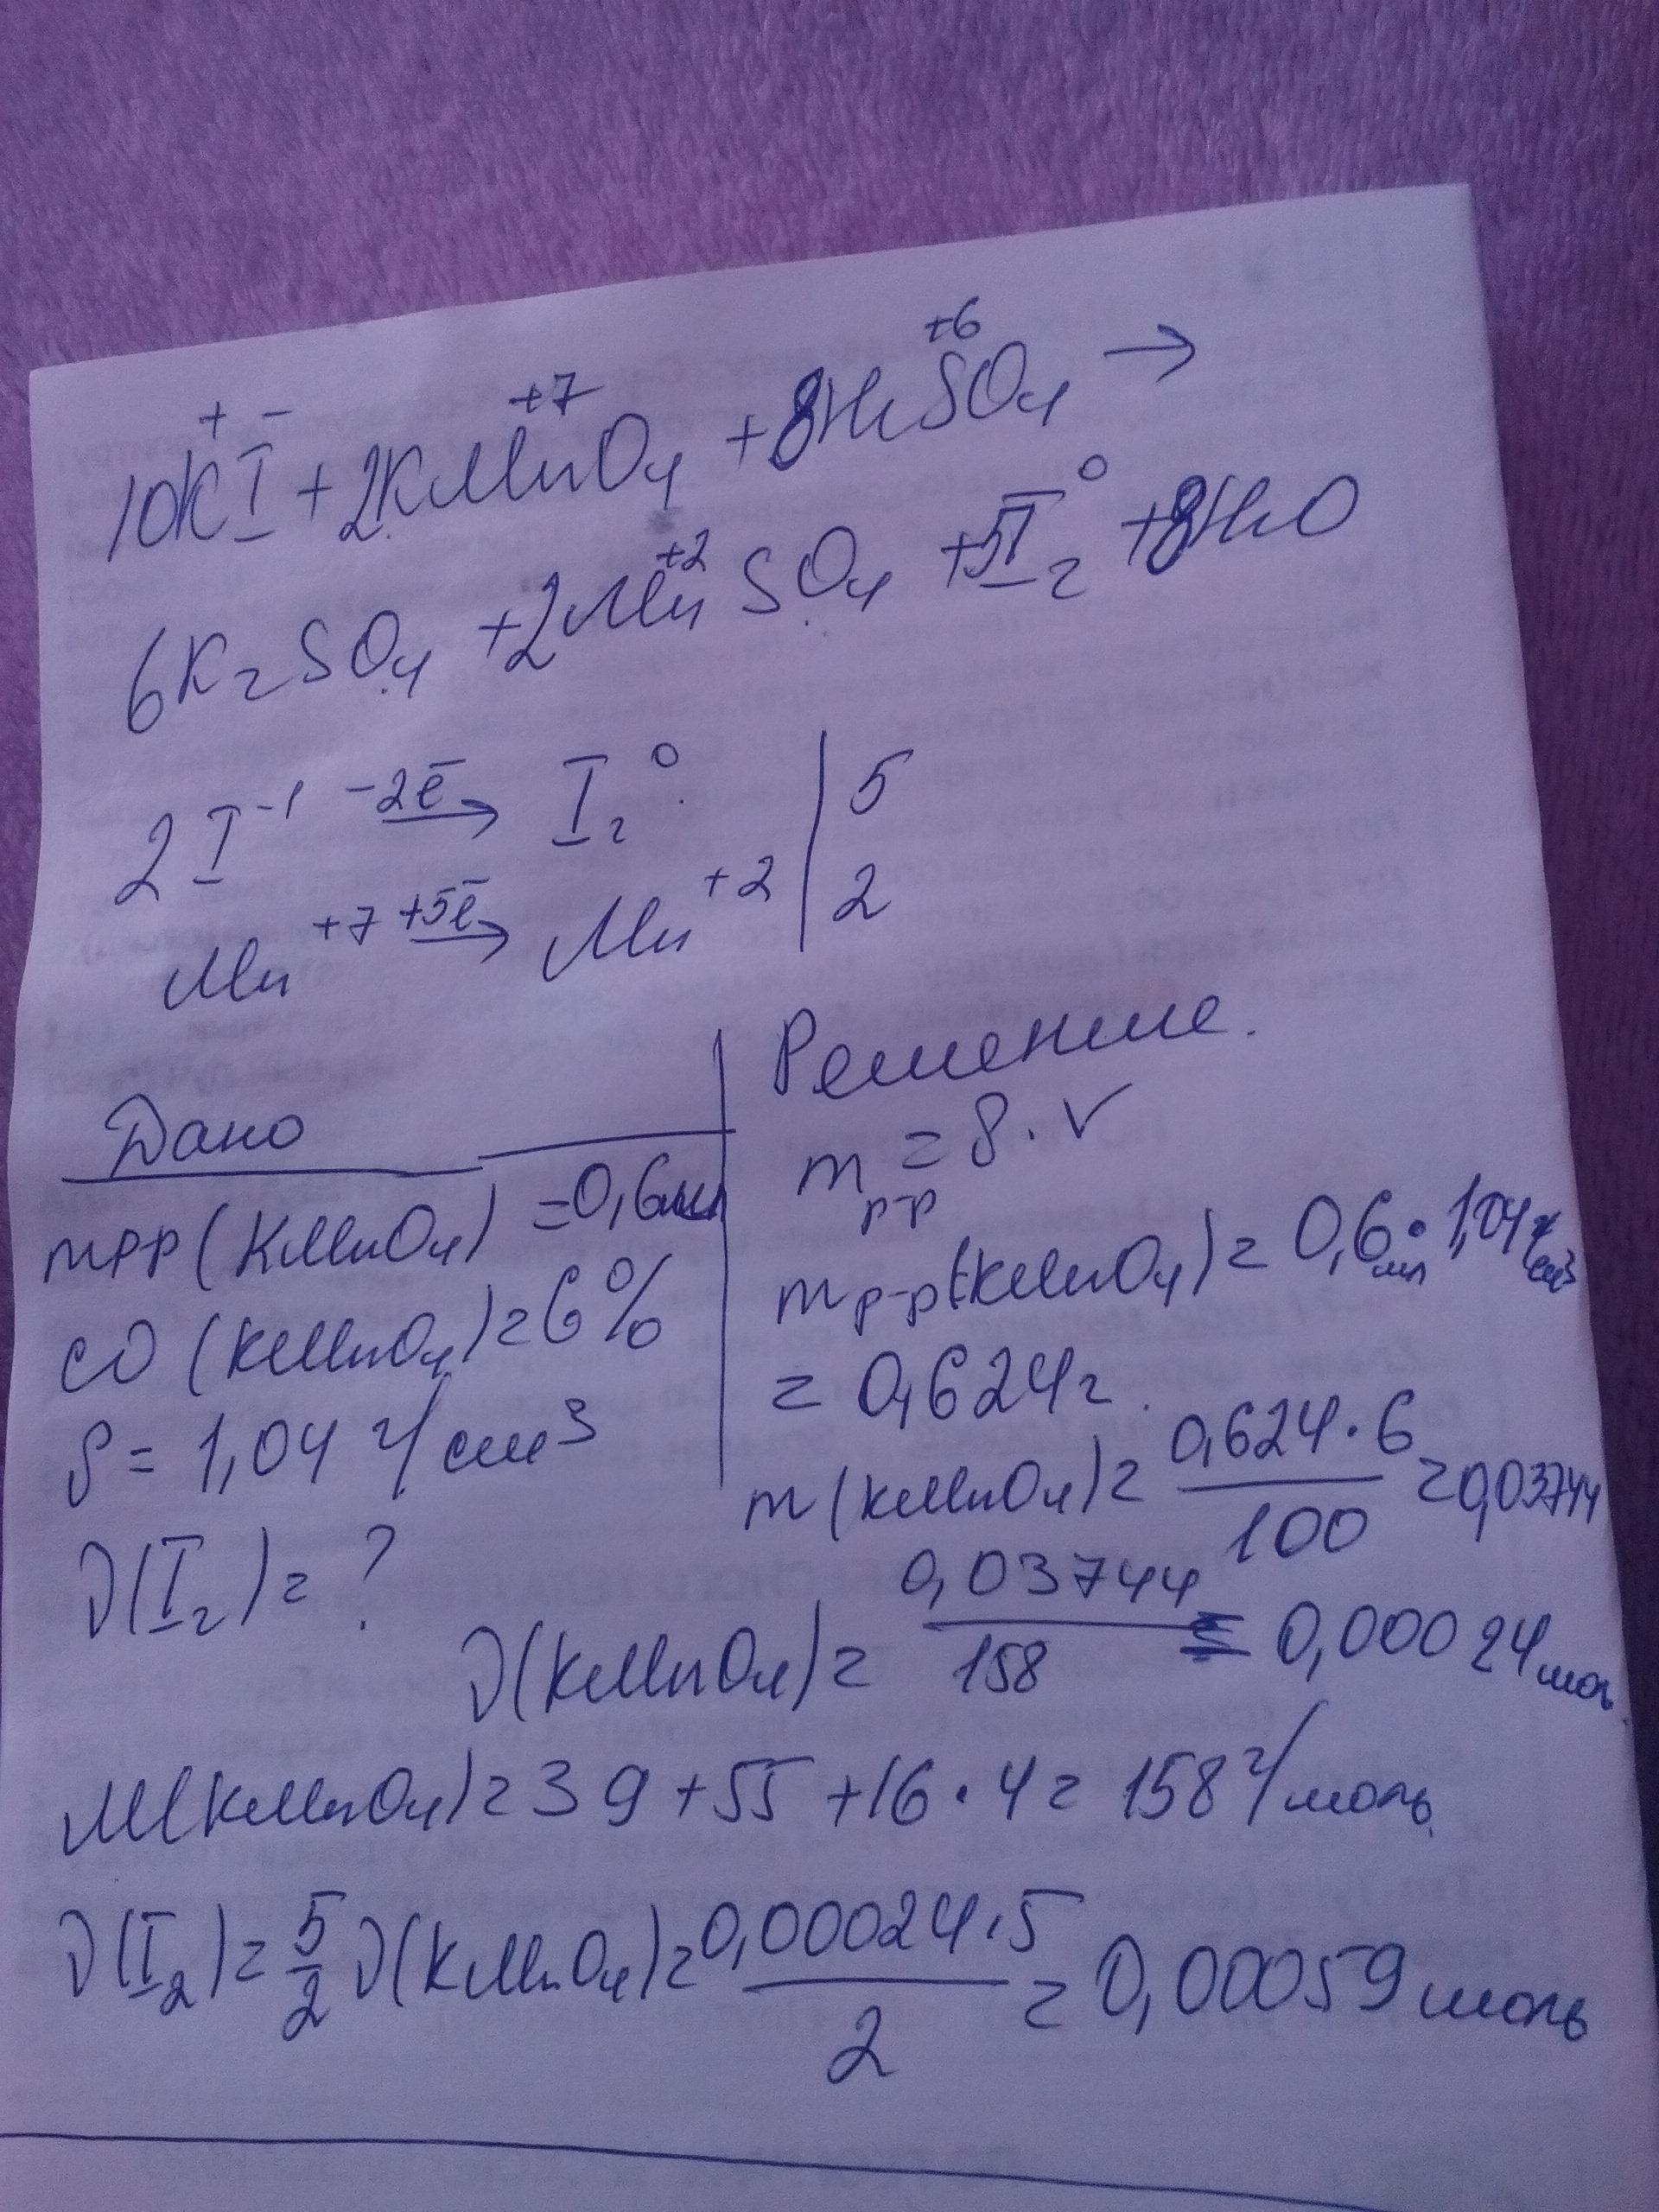 10K⁺I⁻ + 2KMn⁺⁷O₄ + 8H₂S⁺⁶O₄ →
6K₂SO₄ + 2Mn⁺²SO₄ + 5I₂⁰ + 8H₂O
2I⁻¹ −2ē → I₂⁰ | 5
Mn⁺⁷ +5ē → Mn⁺² | 2
Дано
mрр(KMnO₄) = 0,6мл
ω(KMnO₄) = 6%
ρ = 1,04 г/см³
ν(I₂) = ?
Решение.
m р-р = ρ · V
m р-р(KMnO₄) = 0,6 мл · 1,04 г/см³
= 0,624г.
m(KMnO₄) = 0,624·6 / 100 = 0,03744
ν(KMnO₄) = 0,03744 / 158 = 0,00024 мол
M(KMnO₄) = 39 + 55 + 16 · 4 = 158 г/моль.
ν(I₂) = 5/2 ν(KMnO₄) = 0,00024·5 / 2 = 0,00059 моль